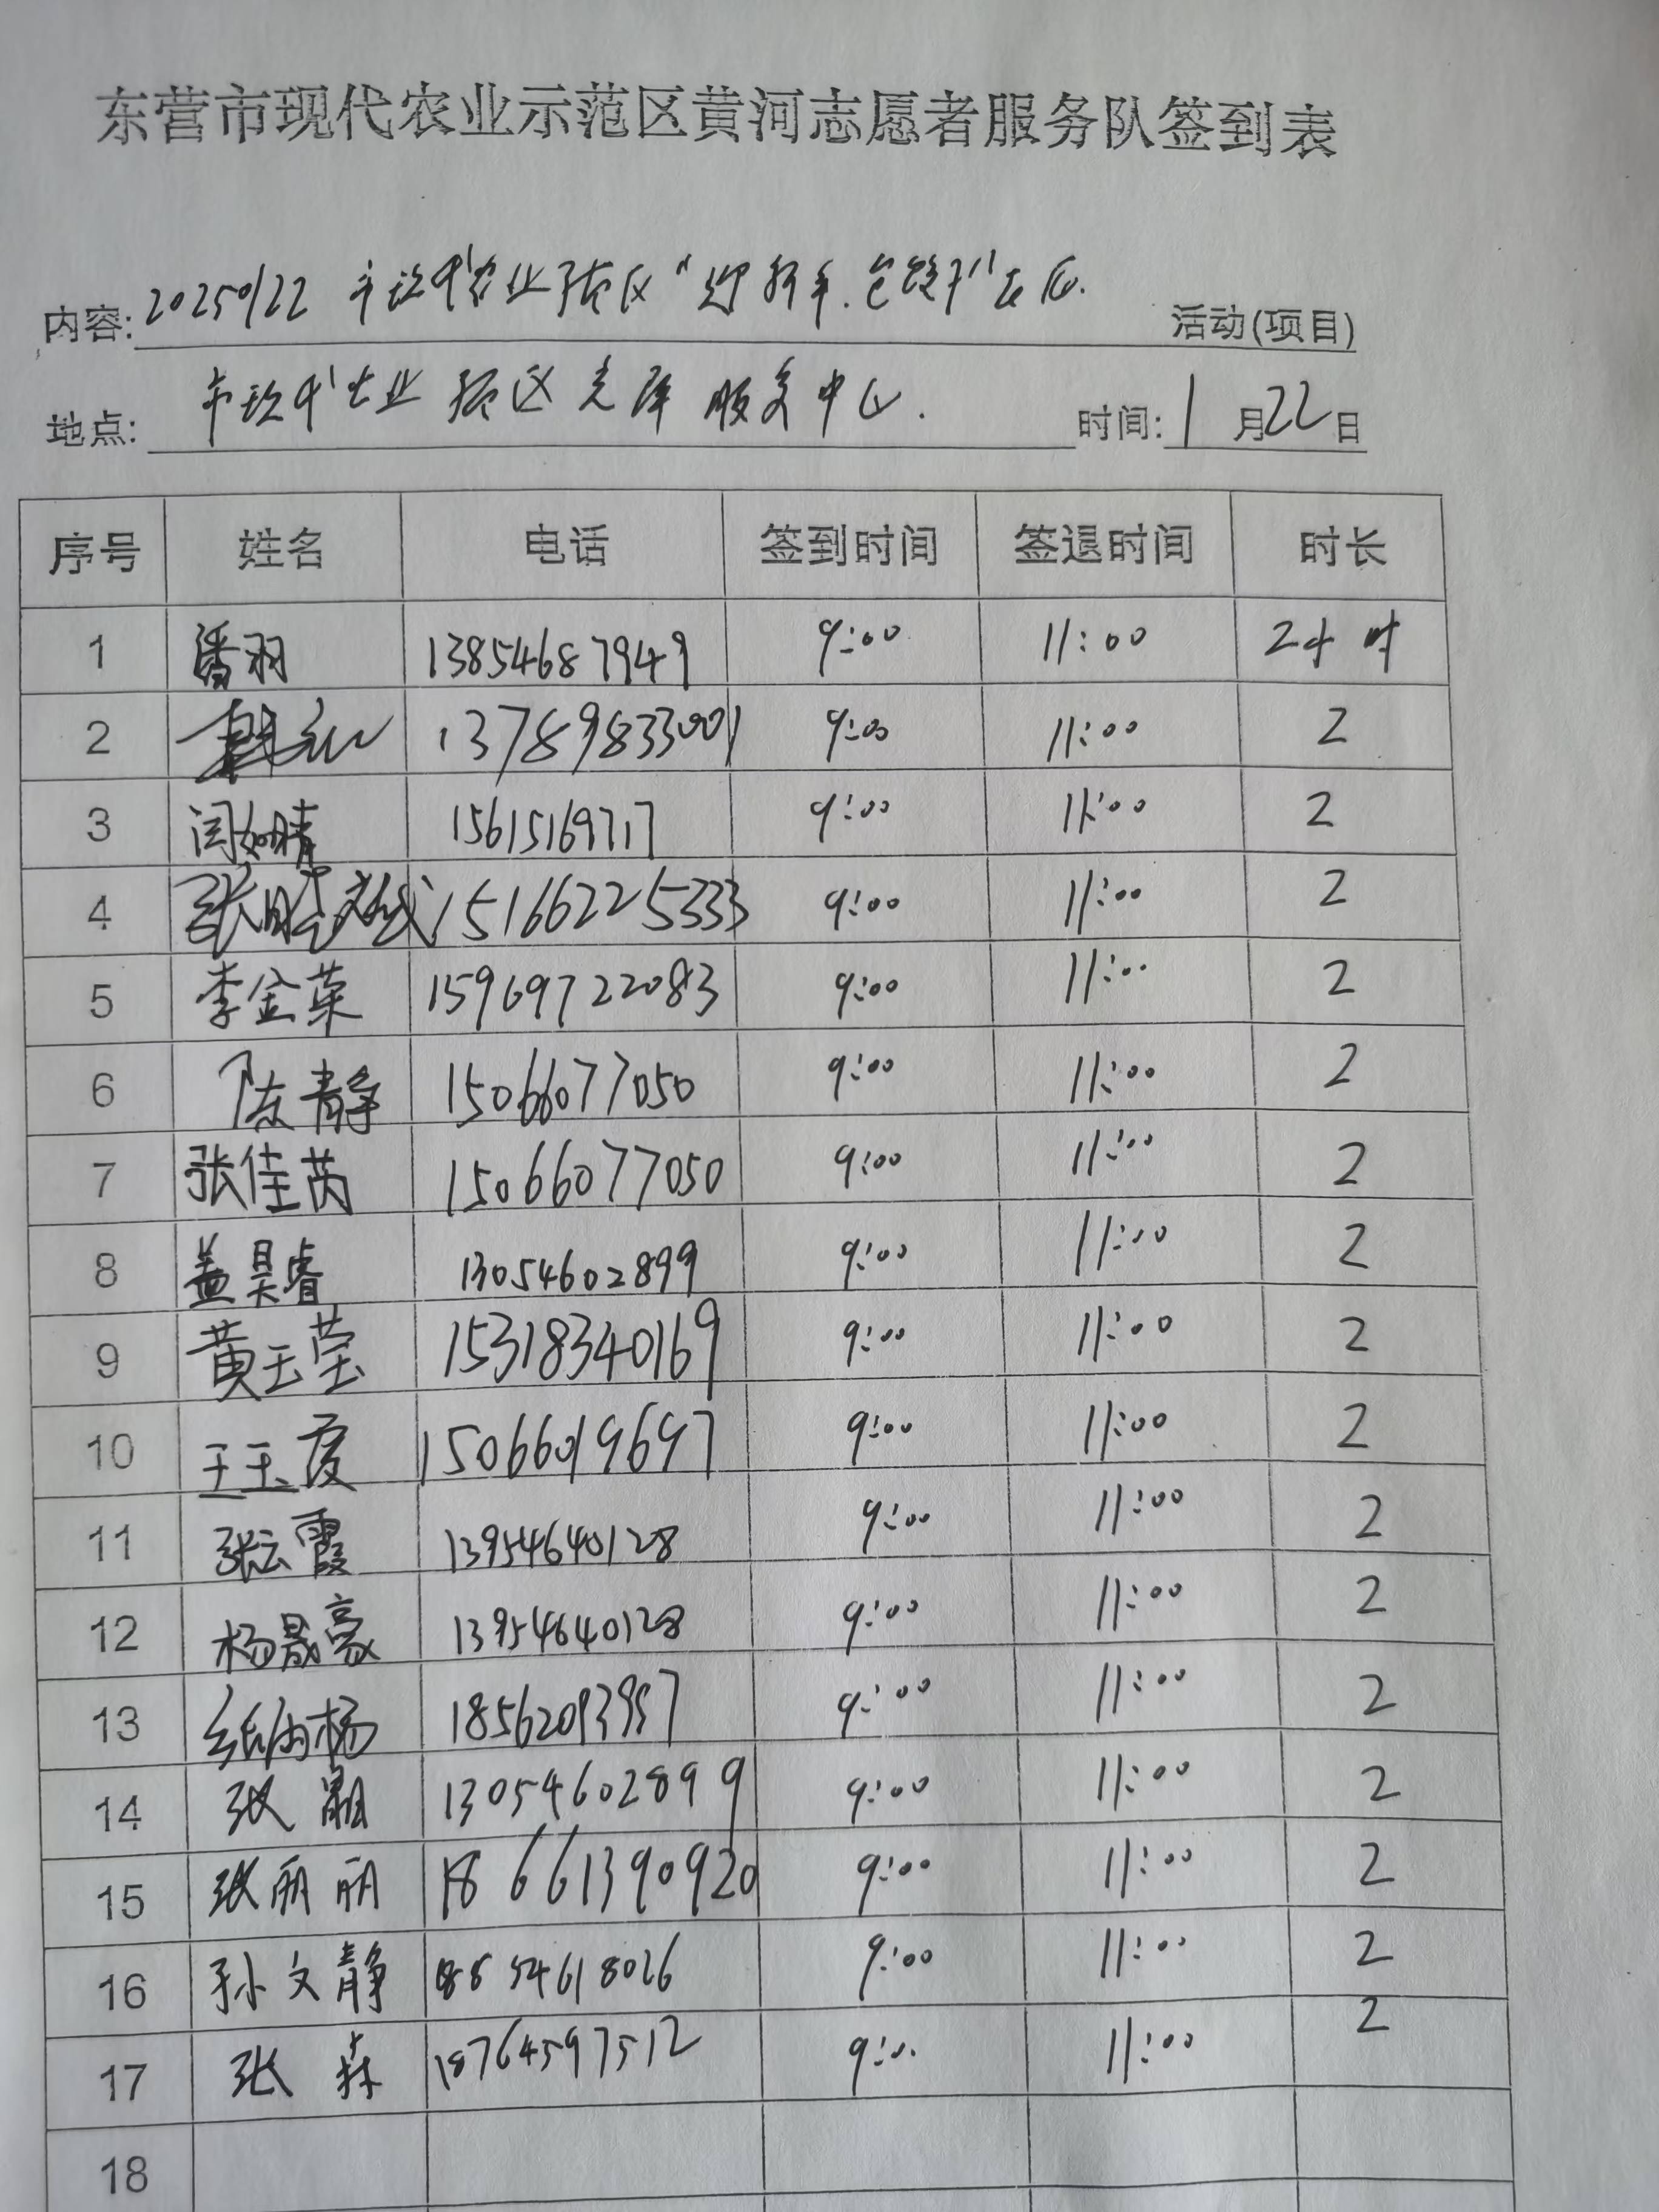 东营市现代农业示范区黄河志愿者服务队签到表
内容: 20250122 市现代农业示范区"迎新年.包饺子"活动. 活动(项目)
地点: 市现代农业示范区党群服务中心. 时间: 1月22日
序号 姓名 电话 签到时间 签退时间 时长
1 潘羽 13854687949 9:00 11:00 2小时
2 13789833001 9:00 11:00 2
3 闫如晴 15615169717 9:00 11:00 2
4 张 15166225333 9:00 11:00 2
5 李金荣 15969722083 9:00 11:00 2
6 陈静 15066077050 9:00 11:00 2
7 张佳芮 15066077050 9:00 11:00 2
8 盖昊睿 13054602899 9:00 11:00 2
9 黄玉莹 15318340169 9:00 11:00 2
10 王玉霞 15066019697 9:00 11:00 2
11 张云霞 13954640128 9:00 11:00 2
12 杨晟豪 13954640128 9:00 11:00 2
13 9:00 11:00 2
14 张 13054602899 9:00 11:00 2
15 张丽丽 18661390920 9:00 11:00 2
16 孙文静 18854618026 9:00 11:00 2
17 张 18764597512 9:00 11:00 2
18